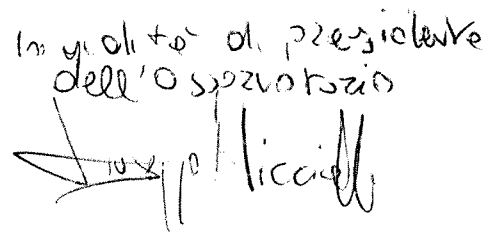 In qualità di presidente
dell'Osservatorio